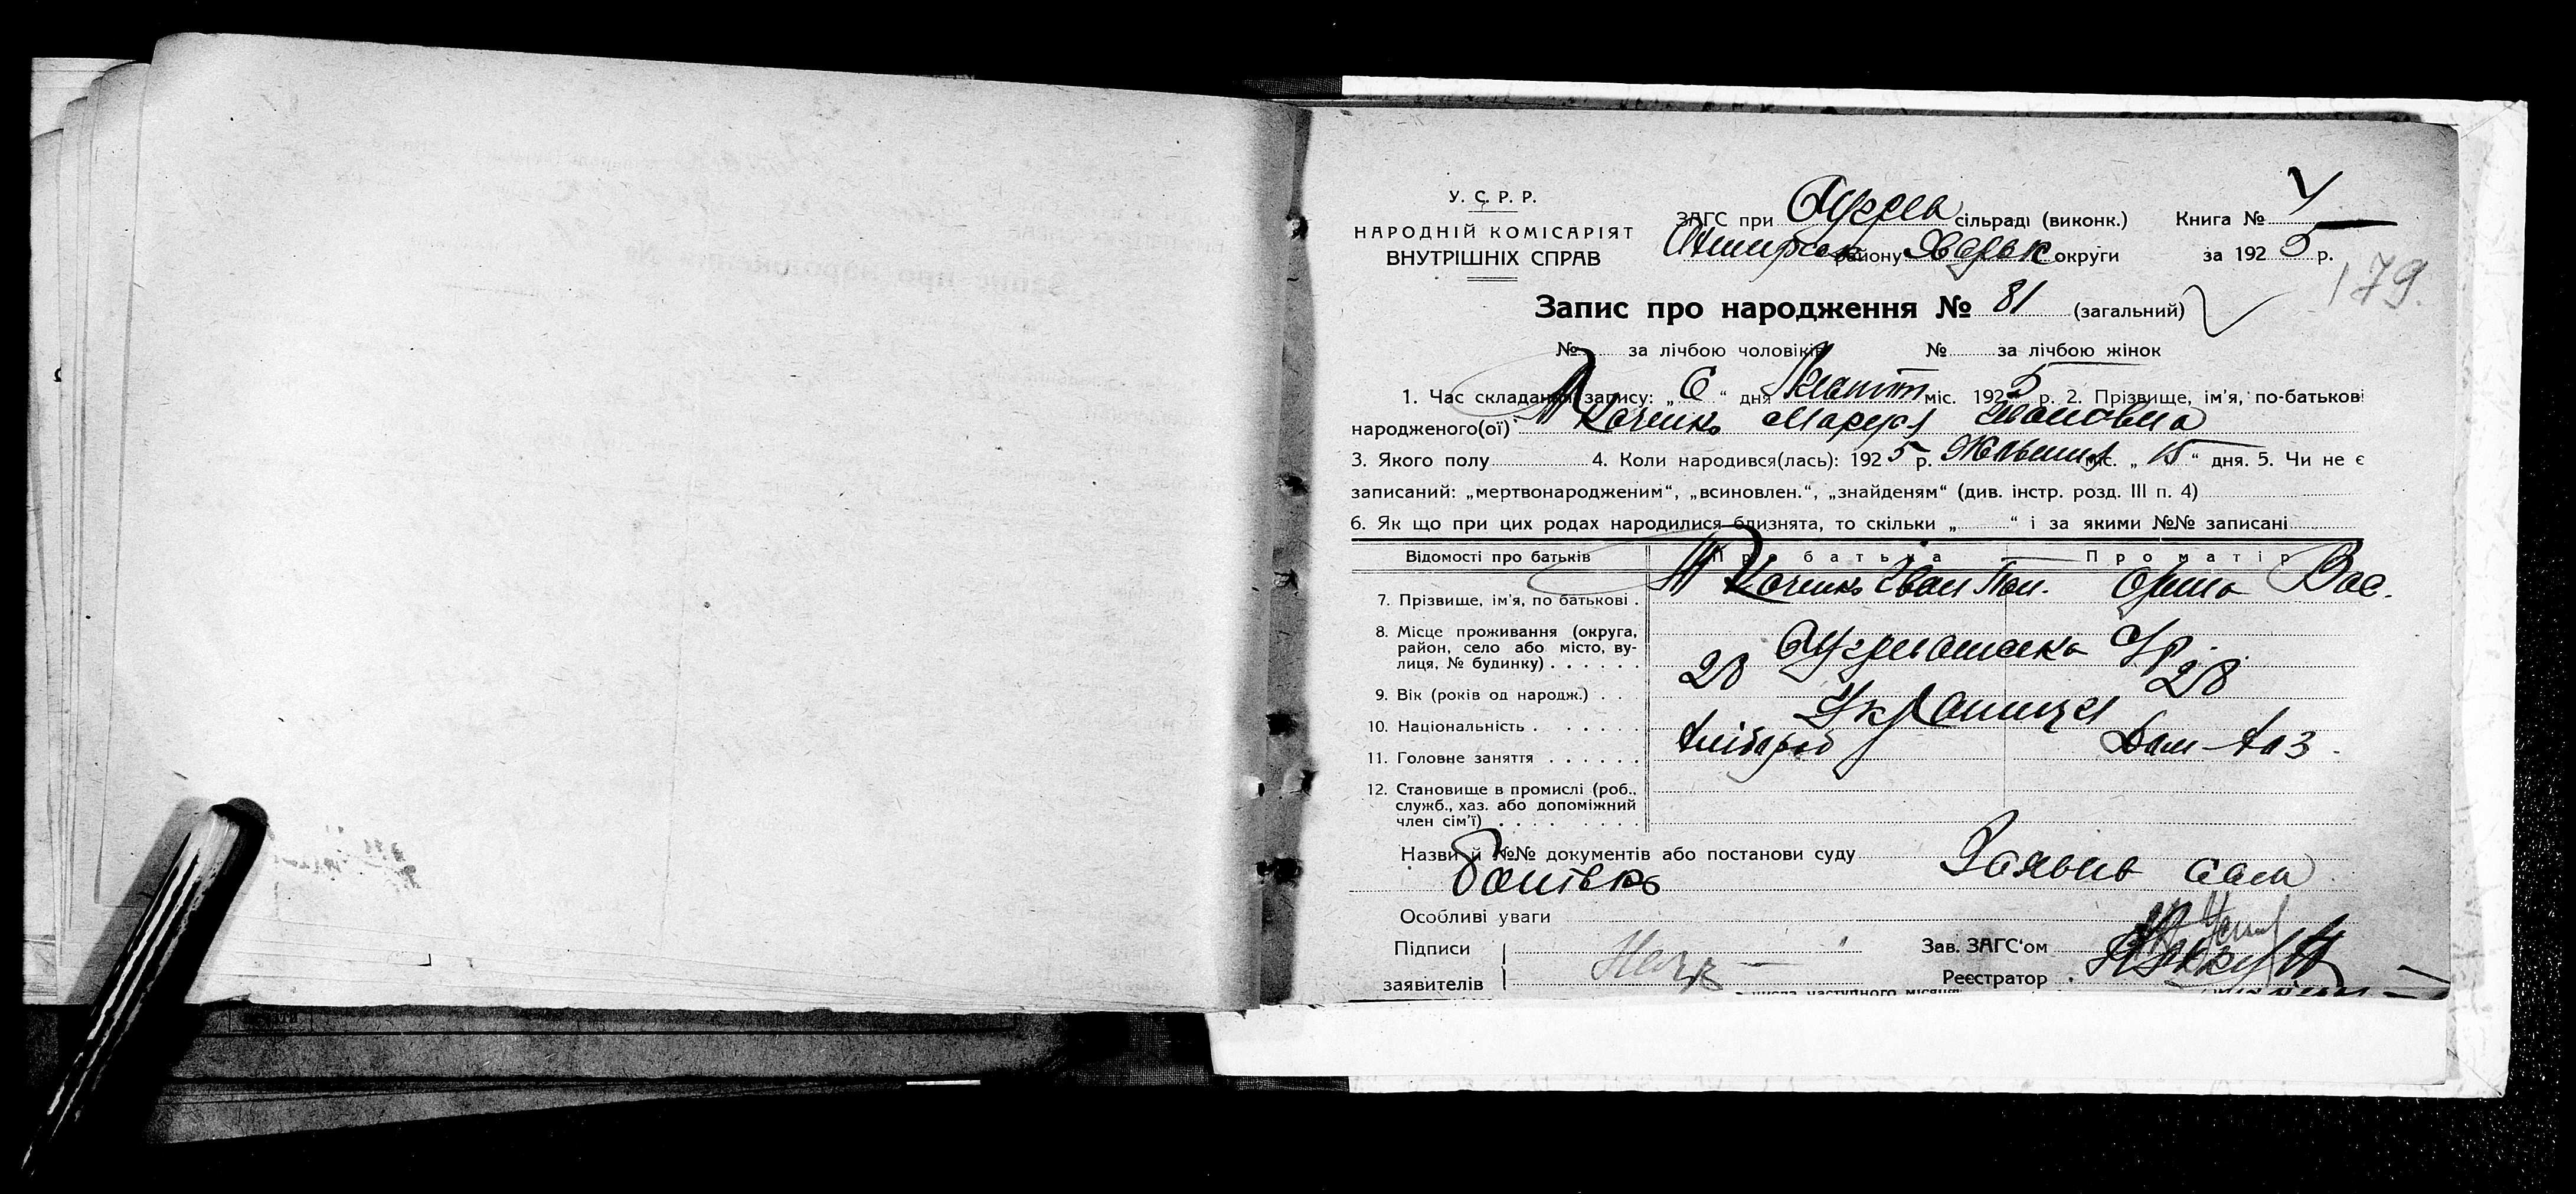 У. С. Р. Р.
НАРОДНІЙ КОМІСАРІЯТ
ВНУТРІШНІХ СПРАВ
ЗАГС при сільраді (виконк.) Книга №
району Харьк округи за 1925 р.
179.
Запис про народження № 81 (загальний)
№ за лічбою чоловіків № за лічбою жінок
1. Час складання запису: „6“ дня міс. 1925 р. 2. Прізвище, ім'я, по-батькові
народженого(ої) Ткаченко Маруся Ивановна
3. Якого полу 4. Коли народився(лась): 1925 р. міс. „15“ дня. 5. Чи не є
записаний: „мертвонародженим“, „всиновлен.“, „знайденям“ (див. інстр. розд. III п. 4)
6. Як що при цих родах народилися близнята, то скільки „ “ і за якими №№ записані
Відомості про батьків Про батька Про матір
7. Прізвище, ім'я, по батькові . Ткаченко Іван Пан. Орина Вас.
8. Місце проживання (округа,
район, село або місто, ву-
лиця, № будинку) . . . . . .
9. Вік (років од народж.) . . 28 28
10. Національність . . . . . . . Українці
11. Головне заняття . . . . . . Хлібороб Дом-Хаз.
12. Становище в промислі (роб.,
служб., хаз. або допоміжний
член сім'ї) . . . . . . . . .
Назви й №№ документів або постанови суду Заявив сам
батько
Особливі уваги
Підписи Зав. ЗАГС'ом
заявителів Реєстратор
числа наступного місяця